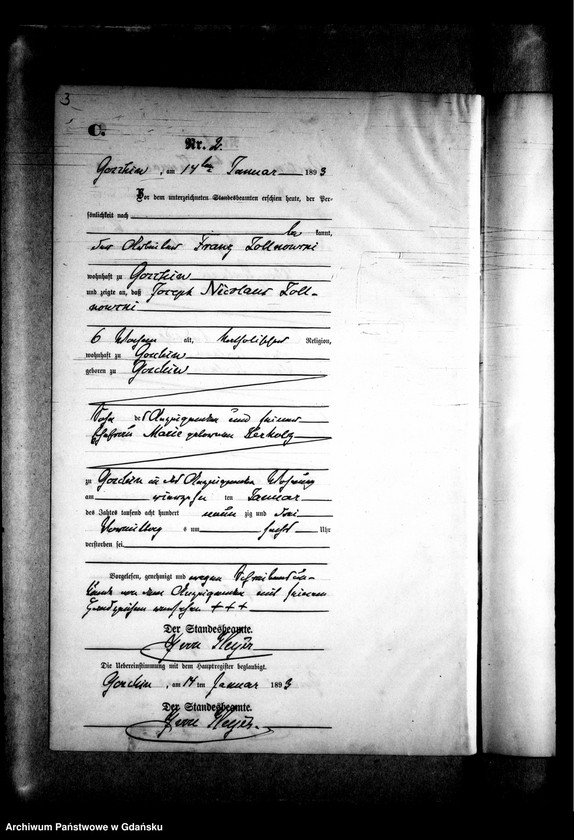 3
C.
Nr. 2.
am 14ten Januar 1893
Vor dem unterzeichneten Standesbeamten erschien heute, der Per-
sönlichkeit nach
be kannt,
der Franz Zollnowski
wohnhaft zu
und zeigte an, daß Joseph Nicolaus Zoll-
nowski
6 Wochen alt, katholischer Religion,
wohnhaft zu
geboren zu
Sohn des Anzeigenden und seiner
Ehefrau Marie geborenen
zu in des Anzeigenden Wohnung
am vierzehn ten Januar
des Jahres tausend acht hundert neun zig und drei
Vormittag s um sechs Uhr
verstorben sei.
Vorgelesen, genehmigt und wegen Schreibensun-
kunde von dem Anzeigenden mit seinem
Handzeichen versehen +++
Der Standesbeamte.
Heyer
Die Uebereinstimmung mit dem Hauptregister beglaubigt.
am 14 ten Januar 1893
Der Standesbeamte.
Heyer
Archiwum Państwowe w Gdańsku